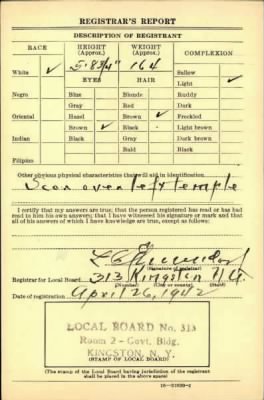 REGISTRAR'S REPORT
DESCRIPTION OF REGISTRANT
RACE HEIGHT (Approx.) WEIGHT (Approx.) COMPLEXION
White ✓ 5' 8 3/4" 164 Sallow
EYES HAIR Light ✓
Negro Blue Blonde Ruddy
Gray Red Dark
Oriental Hazel Brown ✓ Freckled
Brown ✓ Black Light brown
Indian Black Gray Dark brown
Bald Black
Filipino
Other obvious physical characteristics that will aid in identification
Scar over left temple
I certify that my answers are true; that the person registered has read or has had
read to him his own answers; that I have witnessed his signature or mark and that
all of his answers of which I have knowledge are true, except as follows:
(Signature of registrar)
Registrar for Local Board 313 Kingston N.Y.
(Number) (City or county) (State)
Date of registration April 26, 1942
LOCAL BOARD No. 313
Room 2 - Govt. Bldg.
KINGSTON, N. Y.
(STAMP OF LOCAL BOARD)
(The stamp of the Local Board having jurisdiction of the registrant
shall be placed in the above space)